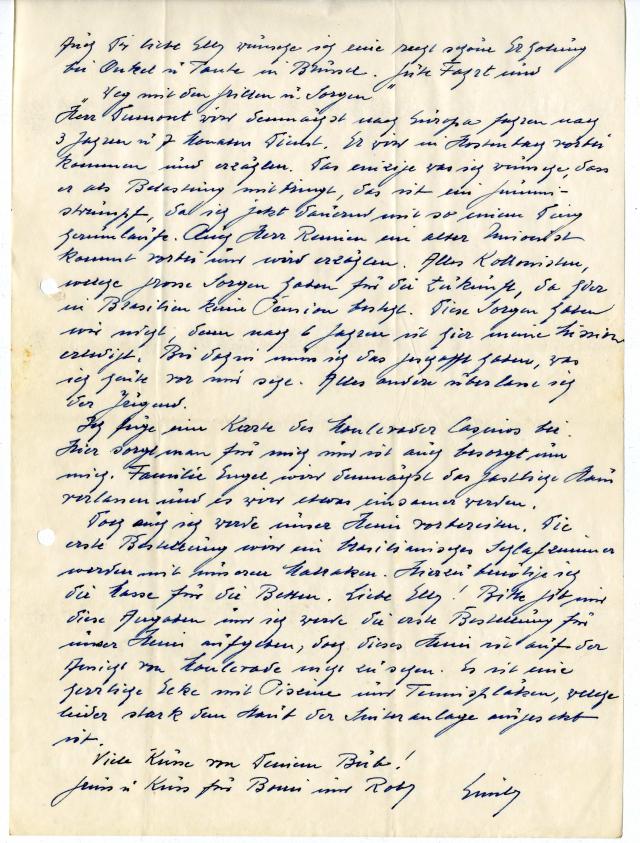 Auch Dir liebe Elly wünsche ich eine recht schöne Erholung
bei Onkel u Tante in Brüssel. Gute Fahrt und
"Weg mit den Grillen u. Sorgen"
Herr Dumont wird demnächst nach Europa fahren nach
3 Jahren u 7 Monaten Dienst. Er wird in vorbei
kommen und erzählen. Das einzige was ich wünsche, dass
er als Belastung mitbringt, das ist ein Gummi-
strumpf, da ich jetzt dauernd mit so einem Ding
herumlaufe. Auch Herr ein alter
kommt vorbei und wird erzählen. Alles Kolloniesten,
welche grosse Sorgen haben für die Zukunft, da hier
in Brasilien keine Pension besteht. Diese Sorgen haben
wir nicht, denn nach 6 Jahren ist hier meine Mission
erledigt. Bis dahin muss ich das geschafft haben, was
ich heute vor mir sehe. Alles andere überlasse ich
der Jugend.
Ich füge eine Karte des Monlevader Casinos bei.
Hier sorgt man für mich und ist auch besorgt um
mich. Familie Engel wird demnächst das gastliche Haus
verlassen und es wird etwas einsamer werden.
Doch auch ich werde unser Heim vorbereiten. Die
erste Bestellung wird ein brasilianisches Schlafzimmer
werden mit unseren Matratzen. Hierzu benötige ich
die Masse für die Betten. Liebe Elly! Bitte gib mir
diese Angaben und ich werde die erste Bestellung für
unser Heim aufgeben, doch dieses Heim ist auf der
Ansicht von Monlevade nicht zu sehen. Es ist eine
herrliche Ecke mit Piscine und Tennisplätzen, welche
leider stark dem Staub der Sinteranlage ausgesetzt
ist.
Viele Küsse von Deinem Bub!
Gruss u Kuss für Bomi und Roby